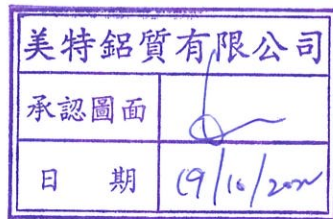 美特鋁質有限公司
承認圖面
日 期 19/10/